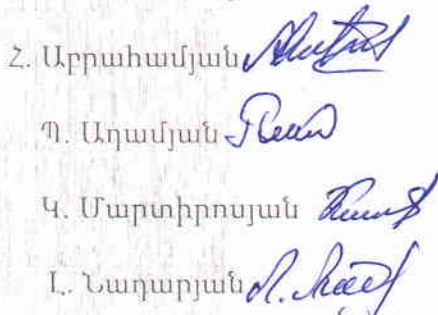 Հ. Աբրահամյան
Պ. Աղամյան
Կ. Մարտիրոսյան
Լ. Նադարյան